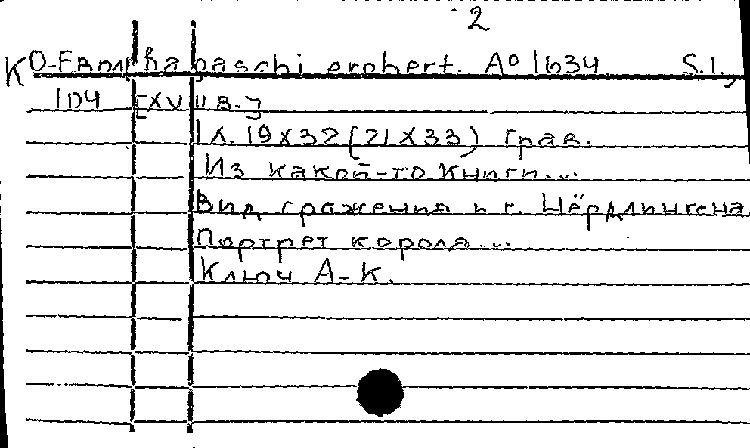 2
KO-Евр ka paschi erobert. Aº 1634 S.l.,
104 [XVII в.]
1 л. 19х32 (21х33) грав.
Из какой-то книги...
Вид сражения п г. Нёрдлингена
Портрет короля...
Ключ А-К.